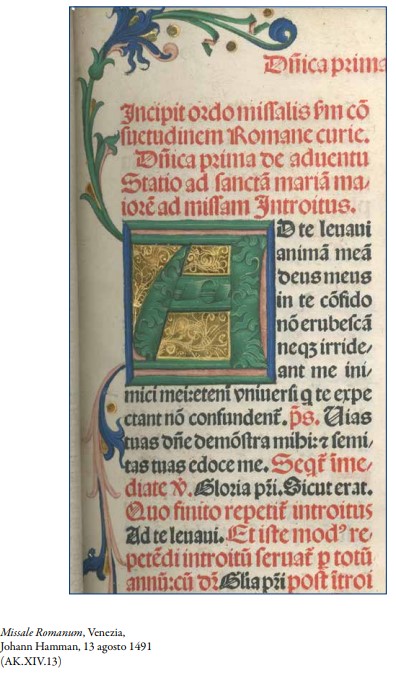 Dñica prima
Incipit ordo missalis ẜm cõ
suetudinem Romane curie.
Dñica prima de aduentu
Statio ad sanctã mariã ma/
iorẽ ad missam Introitus.
AD te leuaui
animã meã
deus meus
in te cõfido
nõ erubescã
neqꝫ irride/
ant me ini
mici mei:etenĩ vniuersi q te expe
ctant nõ confundenẽ. p̃s. Uias
tuas dñe demõstra mihi:⁊ semi/
tas tuas edoce me. Seqt̃ ime/
diate ℣. Gloria pr̃i. Sicut erat.
Quo finito repetit̃ introitus
Ad te leuaui. Et iste modꝰ re/
petẽdi introitũ seruat̃ p totũ
annũ:cũ dr̃ Glia pr̃i post ĩtroi
Missale Romanum, Venezia,
Johann Hamman, 13 agosto 1491
(AK.XIV.13)